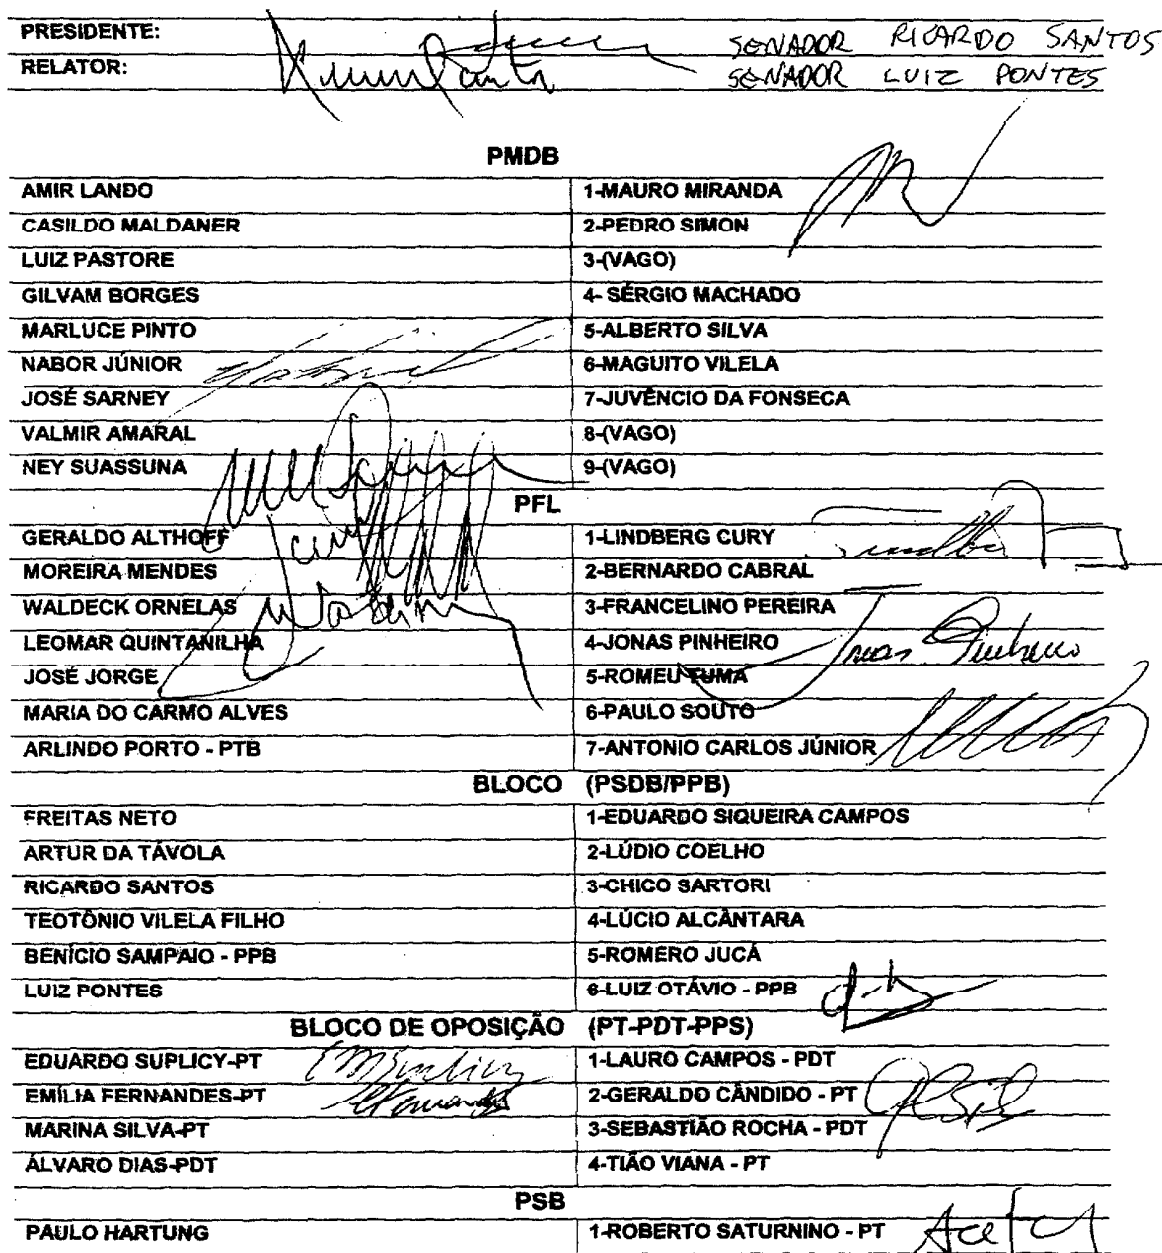 PRESIDENTE: SENADOR RICARDO SANTOS
RELATOR: SENADOR LUIZ PONTES
PMDB
AMIR LANDO 1-MAURO MIRANDA
CASILDO MALDANER 2-PEDRO SIMON
LUIZ PASTORE 3-(VAGO)
GILVAM BORGES 4- SÉRGIO MACHADO
MARLUCE PINTO 5-ALBERTO SILVA
NABOR JÚNIOR 6-MAGUITO VILELA
JOSÉ SARNEY 7-JUVÊNCIO DA FONSECA
VALMIR AMARAL 8-(VAGO)
NEY SUASSUNA 9-(VAGO)
PFL
GERALDO ALTHOFF 1-LINDBERG CURY
MOREIRA MENDES 2-BERNARDO CABRAL
WALDECK ORNELAS 3-FRANCELINO PEREIRA
LEOMAR QUINTANILHA 4-JONAS PINHEIRO Jonas Pinheiro
JOSÉ JORGE 5-ROMEU TUMA
MARIA DO CARMO ALVES 6-PAULO SOUTO
ARLINDO PORTO - PTB 7-ANTONIO CARLOS JÚNIOR
BLOCO (PSDB/PPB)
FREITAS NETO 1-EDUARDO SIQUEIRA CAMPOS
ARTUR DA TÁVOLA 2-LÚDIO COELHO
RICARDO SANTOS 3-CHICO SARTORI
TEOTÔNIO VILELA FILHO 4-LÚCIO ALCÂNTARA
BENÍCIO SAMPAIO - PPB 5-ROMERO JUCÁ
LUIZ PONTES 6-LUIZ OTÁVIO - PPB
BLOCO DE OPOSIÇÃO (PT-PDT-PPS)
EDUARDO SUPLICY-PT 1-LAURO CAMPOS - PDT
EMÍLIA FERNANDES-PT 2-GERALDO CÂNDIDO - PT
MARINA SILVA-PT 3-SEBASTIÃO ROCHA - PDT
ÁLVARO DIAS-PDT 4-TIÃO VIANA - PT
PSB
PAULO HARTUNG 1-ROBERTO SATURNINO - PT